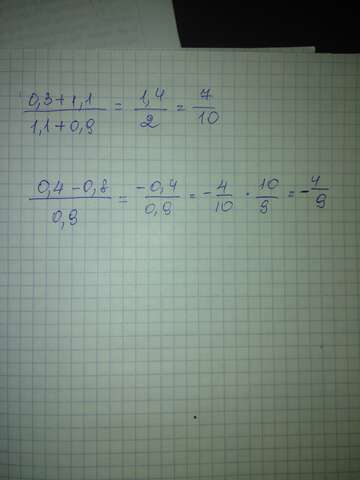 (0,3+1,1)/(1,1+0,9) = 1,4/2 = 7/10
(0,4-0,8)/0,9 = -0,4/0,9 = -4/10 · 10/9 = -4/9